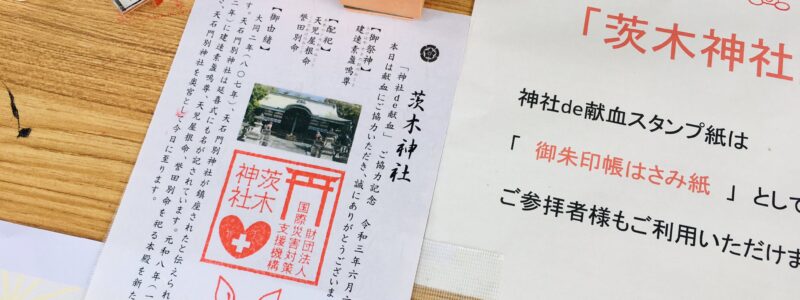 茨木神社
「神社de献血」ご協力記念　令和三年六月
本日は献血にご協力いただき、誠にありがとうございま
【御祭神】
建速素盞嗚尊
【配祀】
天児屋根命
誉田別命
【御由緒】
大同二年（八〇七年）、天石門別神社が鎮座されたと伝えられ
す。天石門別神社は延喜式にも名が記されています。元和八年（一
二年）に建速素盞嗚尊、天児屋根命、誉田別命を祀る本殿を新た
、天石門別神社を奥宮として今日に至ります。
茨木
神社
財団法人
国際災害対策
支援機構
「茨木神社
神社de献血スタンプ紙は
「 御朱印帳はさみ紙 」として
ご参拝者様もご利用いただけま